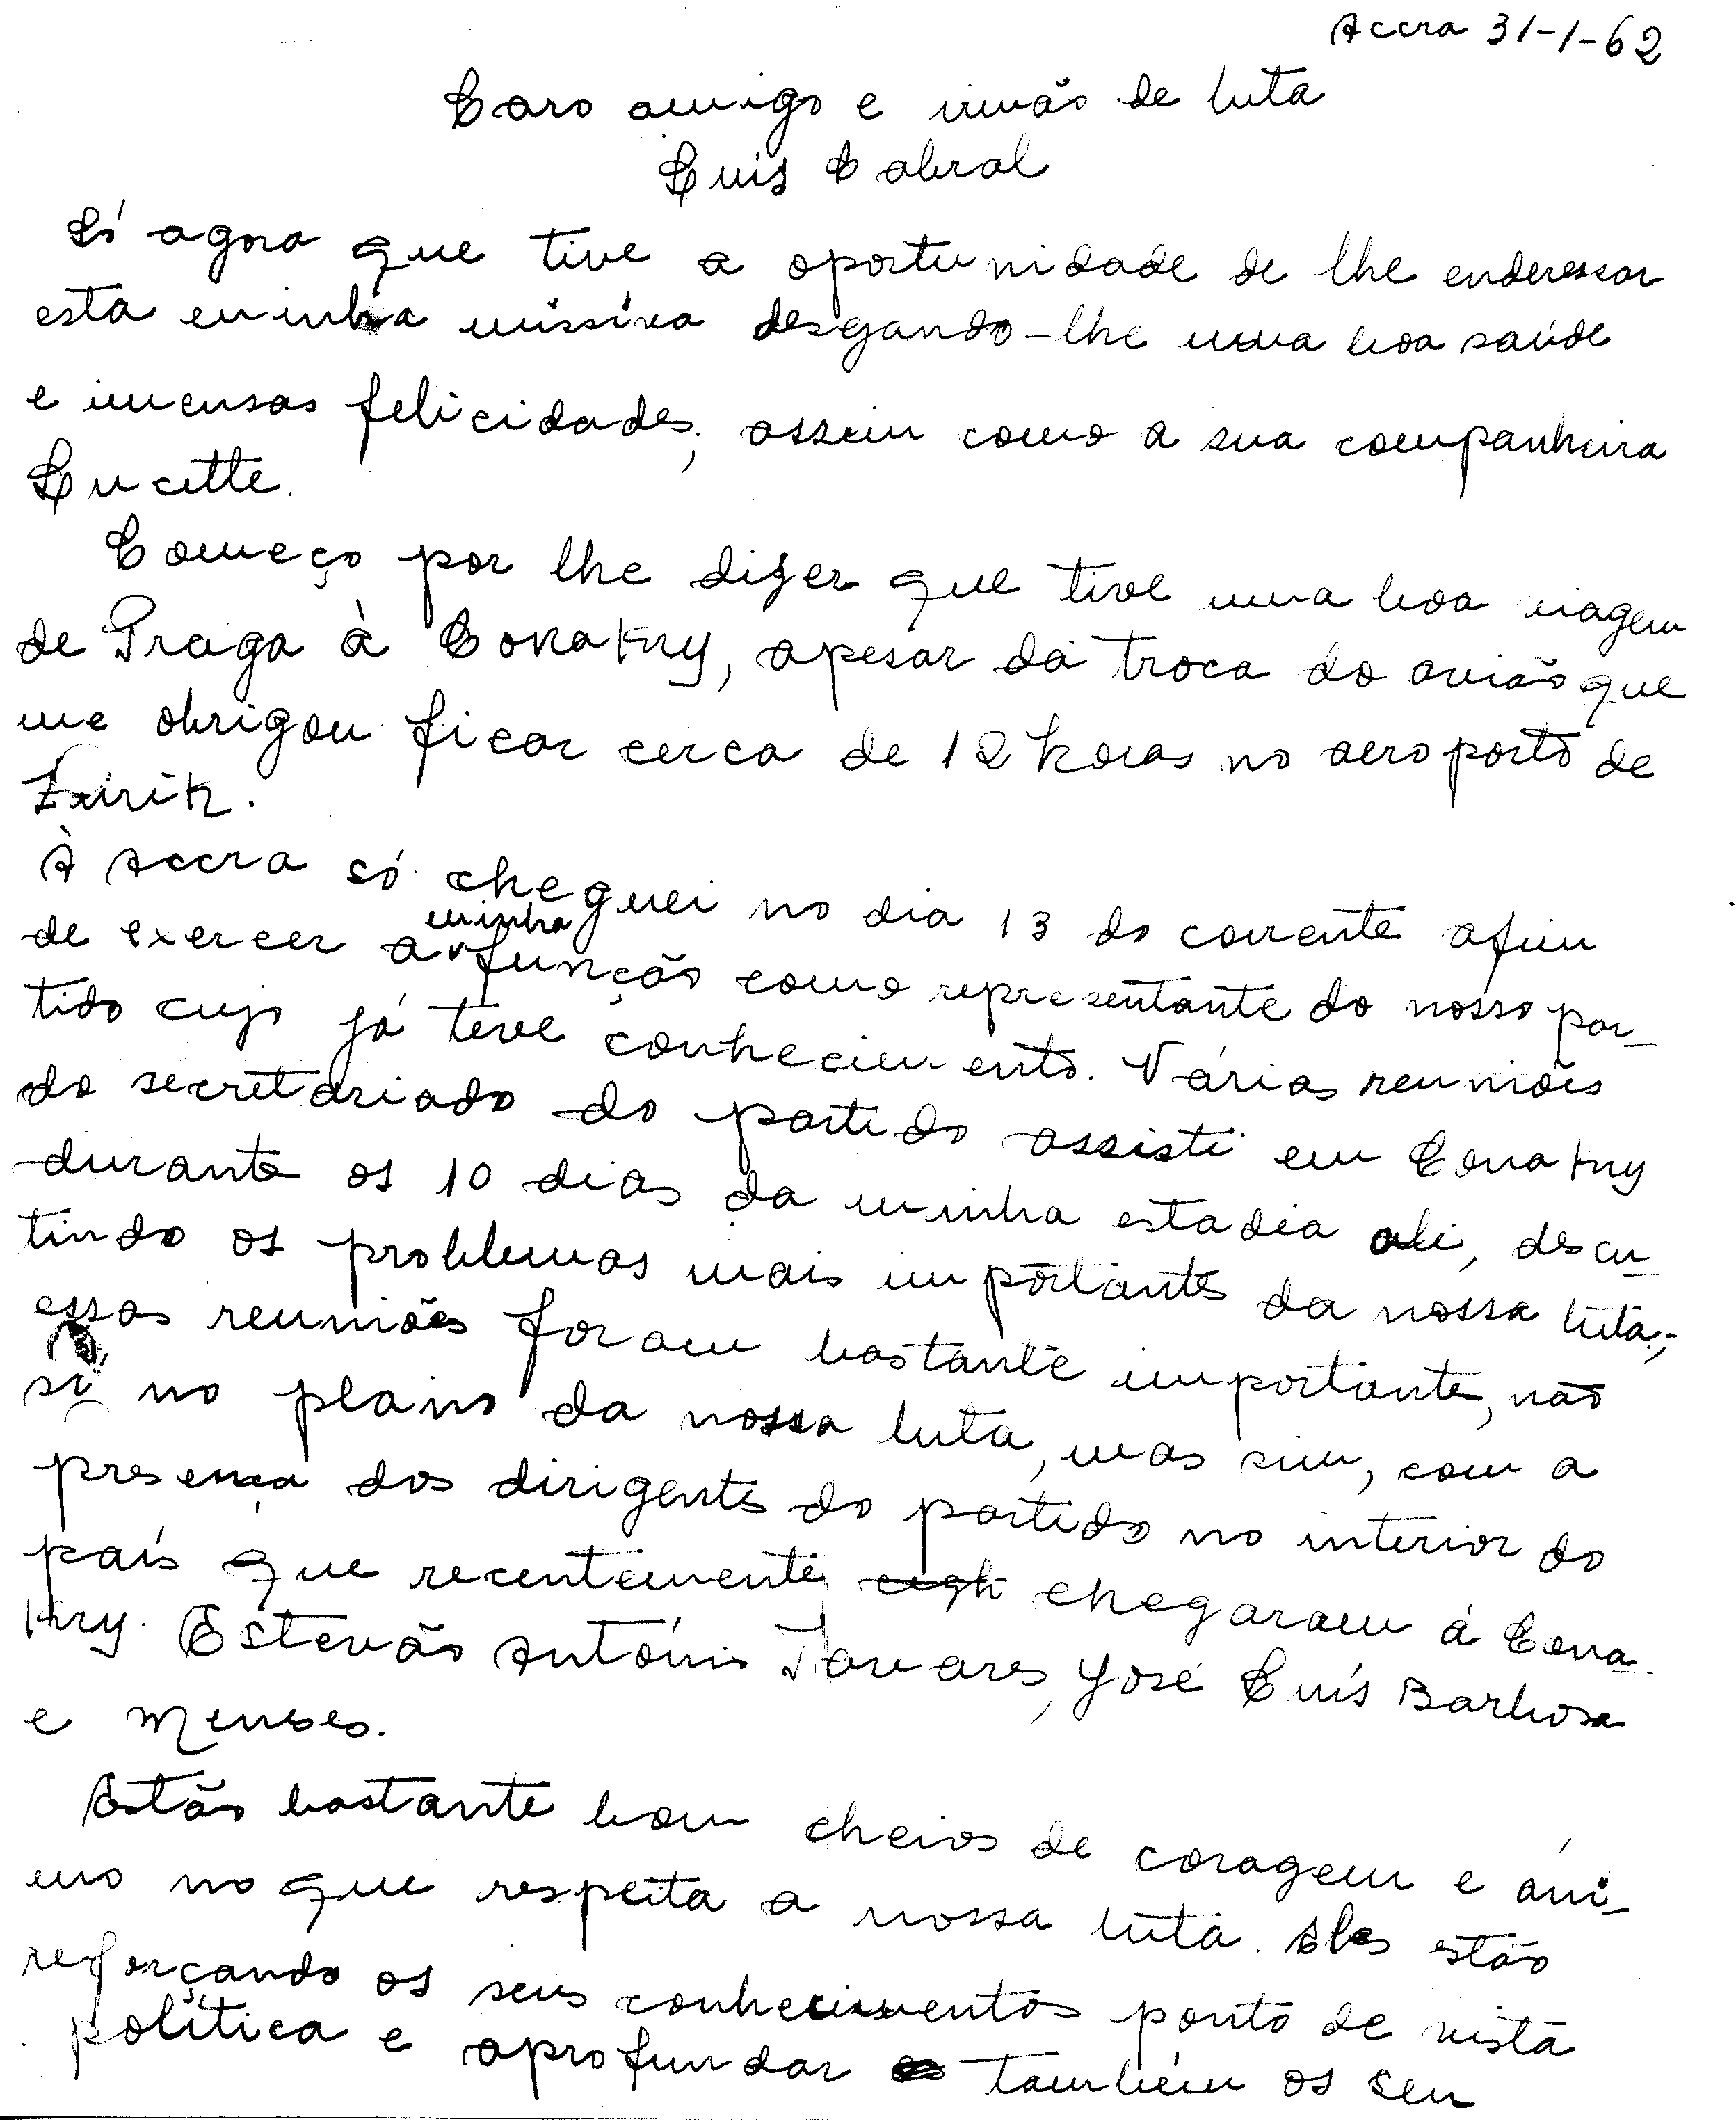 Accra 31-1-62
Caro amigo e irmão de luta
Luís Cabral
Só agora que tive a oportunidade de lhe enderessar
esta minha missiva desejando-lhe uma boa saúde
e imensas felicidades, assim como a sua companheira
Lucette.
Começo por lhe dizer que tive uma boa viagem
de Praga à Conakry, apesar da troca do avião que
me obrigou ficar cerca de 12 horas no aeroporto de
Zurik.
À Accra só cheguei no dia 13 do corrente afim
de exercer a minha função como representante do nosso par_
tido cujo já teve conhecimento. Várias reuniões
do secretariado do partido assisti em Conakry
durante os 10 dias da minha estadia ali, descu_
tindo os problemas mais importantes da nossa luta;
essas reuniões foram bastante importante, não
só no plano da nossa luta, mas sim, com a
presença dos dirigentes do partido no interior do
país que recentemente chegaram á Cona_
kry. Estevão António Tavares, José Luís Barbosa
e Menses.
Estão bastante bom cheios de coragem e áni_
mo no que respeita a nossa luta. Eles estão
reforçando os seus conhecimentos ponto de vista
política e aprofundar também os seu